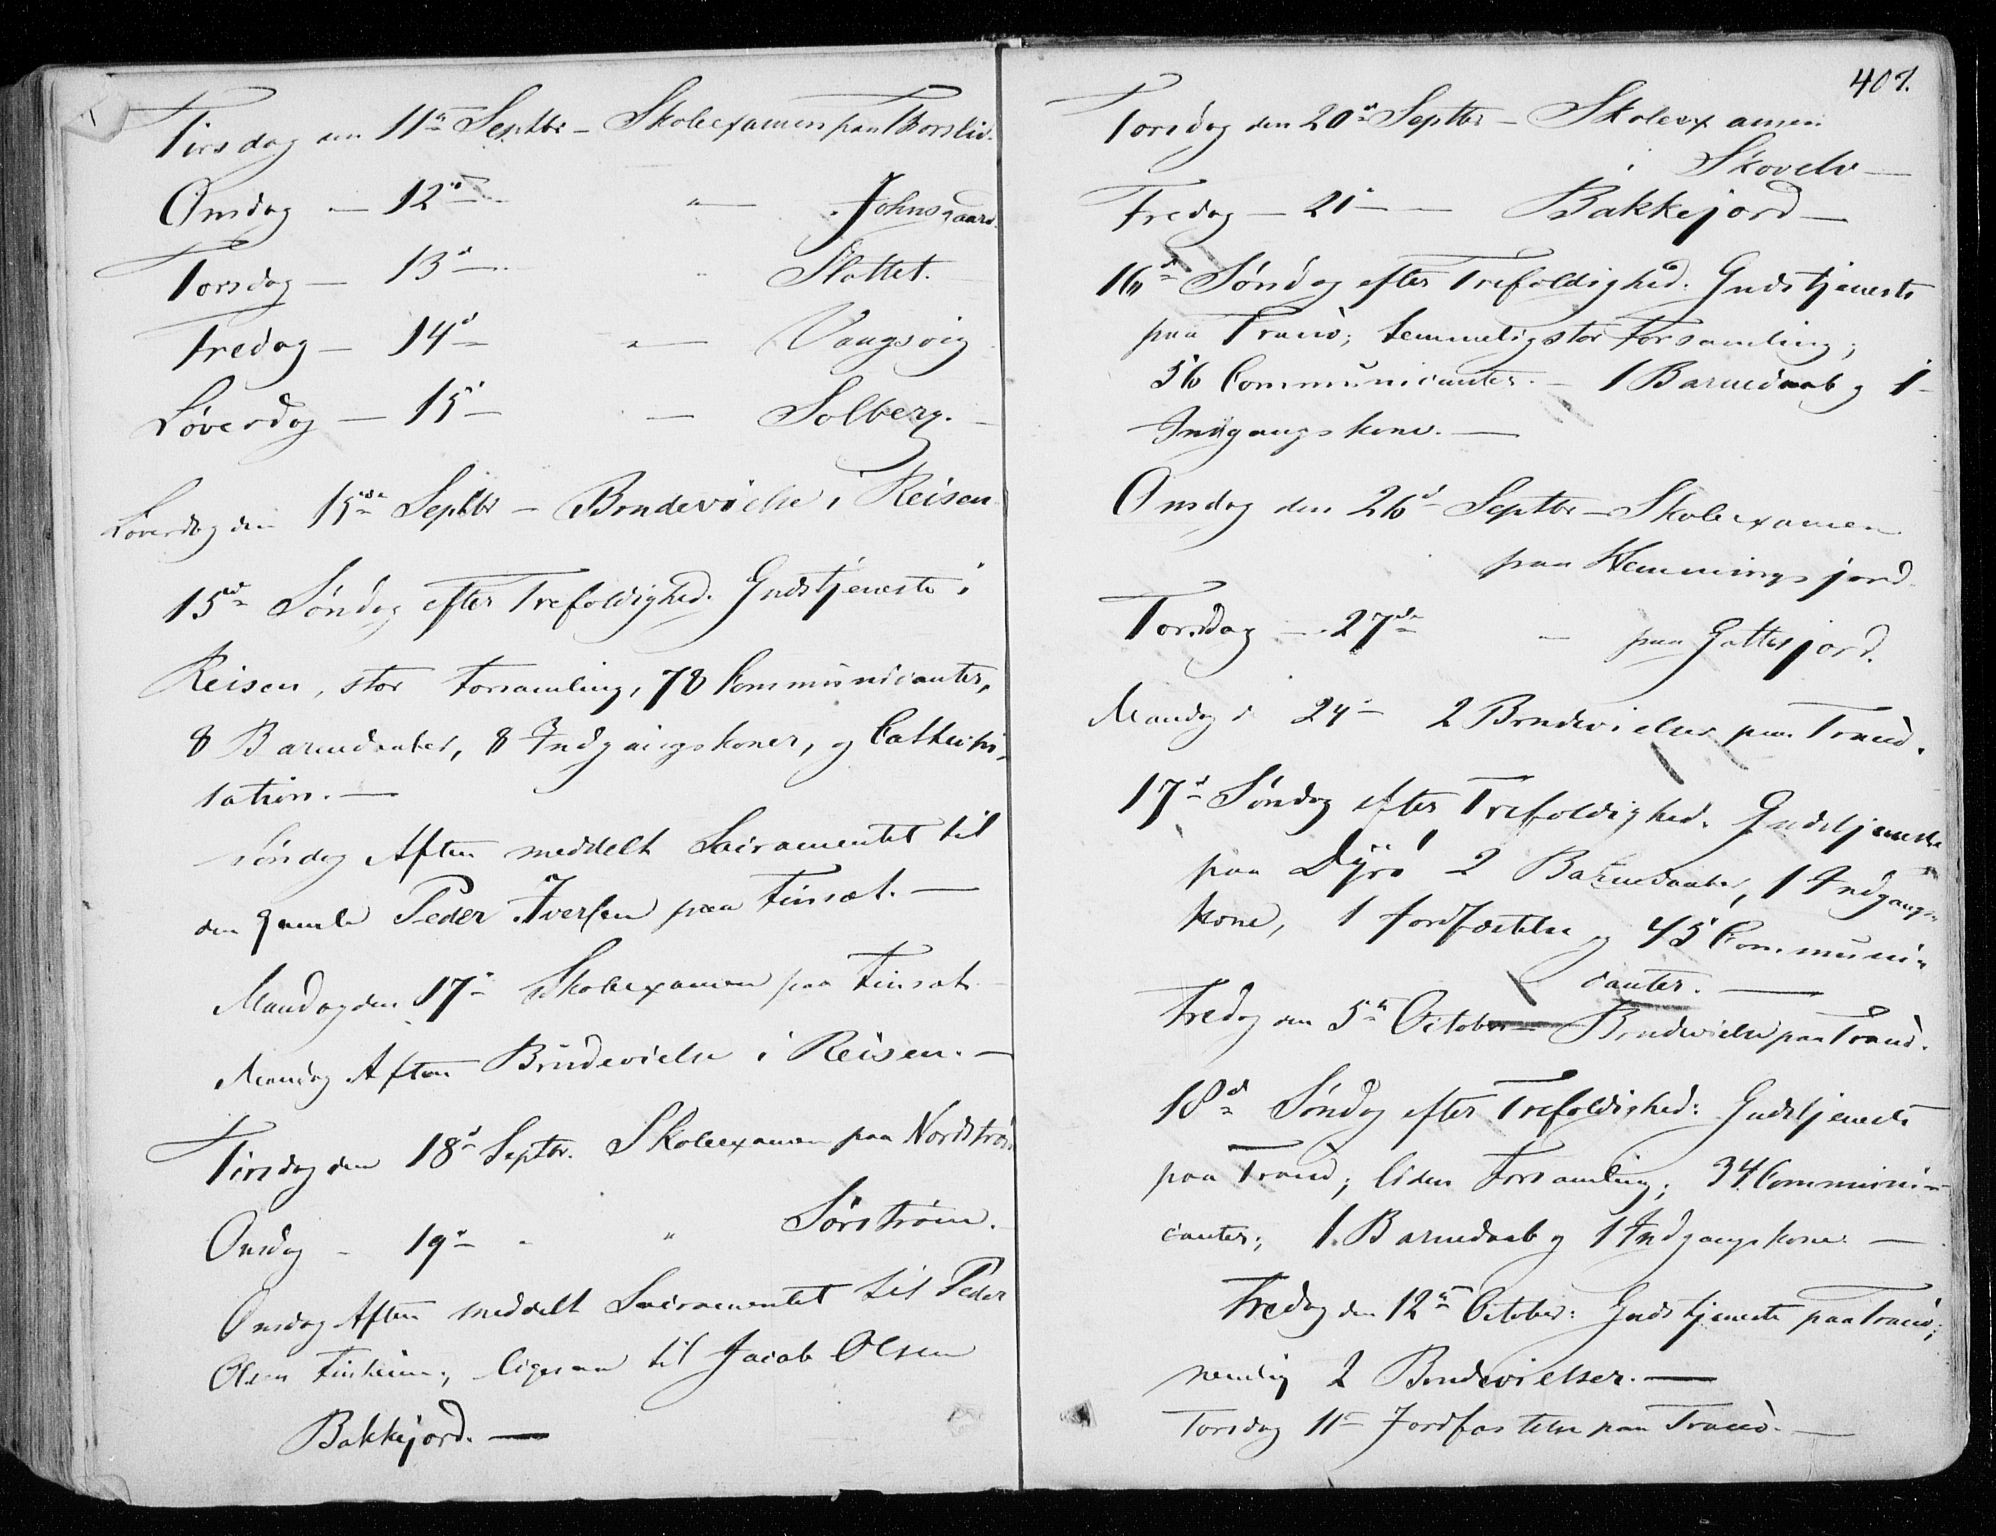 Tirsdag den 11te Septbr – Skoleexamen paa Thorsliv.
Onsdag – 12d – " – Johnsgaard.
Torsdag – 13d – " Slattet.
Fredag – 14d – " – Vangsvig
Løverdag – 15 – – Solberg. –
Løverdag den 15de Septbr – Brudevielse i Reisen
15de Søndag efter Trefoldighed. Gudstjeneste i
Reisen, stor Forsamling, 78 Communicanter,
8 Barnedaaber, 8 Indgangskoner, og Cathechi-
sation. –
Søndag Aften meddelt Sacramentet til
den gamle Peder Iversen paa Finsæt. –
Mandag den 17d Skoleexamen paa Finsæt –
Mandag Aften Brudevielse i Reisen. –
Tirsdag den 18d Septbr. Skoleexamen paa Nordstrøm
Onsdag – 19d – " Sørstrøm.
Onsdag Aften meddelt Sacramentet til Peder
Olsen Finheim; ligesaa til Jacob Olsen
Bakkejord. –
407.
Torsdag den 20d Septbr – Skoleexamen
i Skovelv –
Fredag – 21d – – Bakkejord –
16d Søndag efter Trefoldighed. Gudstjeneste
paa Tranö; temmelig stor Forsamling;
36 Communicanter. – 1 Barnedaab og 1
Indgangskone. –
Onsdag den 26d Septbr – Skoleexamen
paa Hemmingsjord.
Torsdag – 27de – paa Gottesjord.
Mandag d 24d 2 Brudevielser paa Tranö.
17d Søndag efter Trefoldighed. Gudstjeneste
paa Dyrö 2 Barnedaaber, 1 Indgangs-
kone, 1 Jordfæstelse og 45 Communi-
canter. –
Fredag den 5te October – Brudevielse paa Tranö.
18d Søndag efter Trefoldighed: Gudstjeneste
paa Tranö; liden Forsamling; 34 Communi-
canter; 1 Barnedaab og 1 Indgangskone. –
Fredag den 12te October: Gudstjeneste paa Tranö;
nemlig 2 Brudevielser. –
Torsdag 11te Jordfæstelse paa Tranö. –